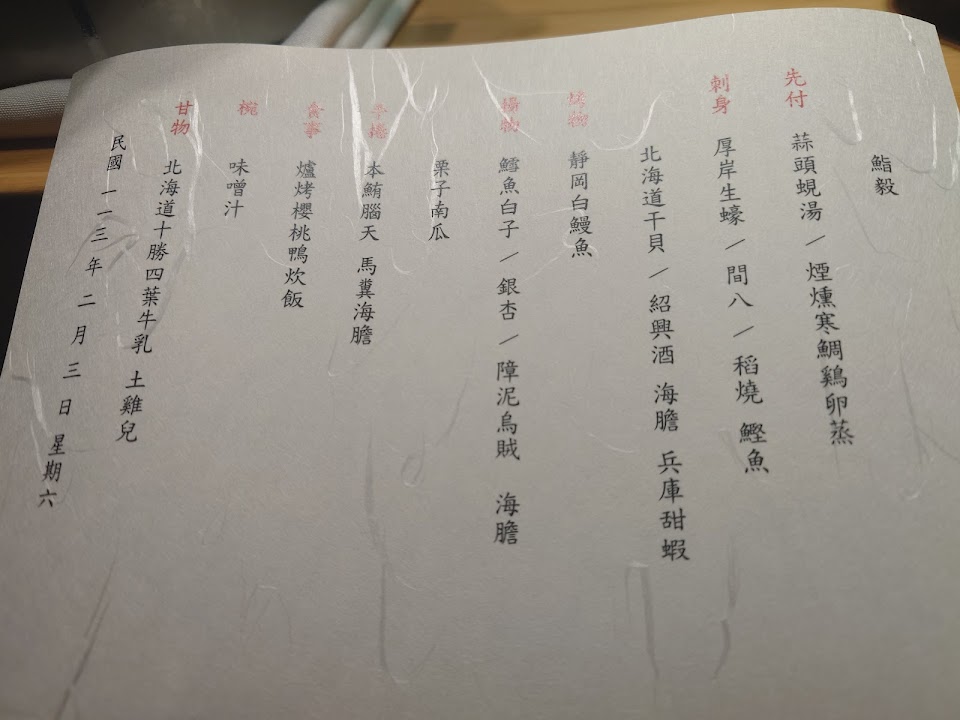 鮨毅
先付
蒜頭蜆湯／煙燻寒鯛鷄卵蒸
刺身
厚岸生蠔／間八／稻燒 鰹魚
北海道干貝／紹興酒 海膽 兵庫甜蝦
烤物
靜岡白鰻魚
揚物
鱈魚白子／銀杏／障泥烏賊 海膽
栗子南瓜
手捲
本鮪腦天 馬糞海膽
食事
爐烤櫻桃鴨炊飯
椀
味噌汁
甘物
北海道十勝四葉牛乳 土雞兒
民國一一三年二月三日 星期六